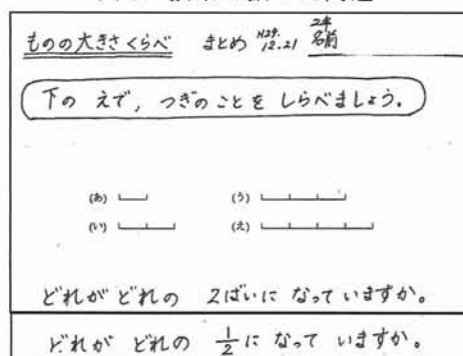 ものの大きさくらべ まとめ H29.12.21 2年 名前
下の えで，つぎのことを しらべましょう。
(あ) (う)
(い) (え)
どれがどれの 2ばいに なって いますか。
どれが どれの 1/2 に なって いますか。